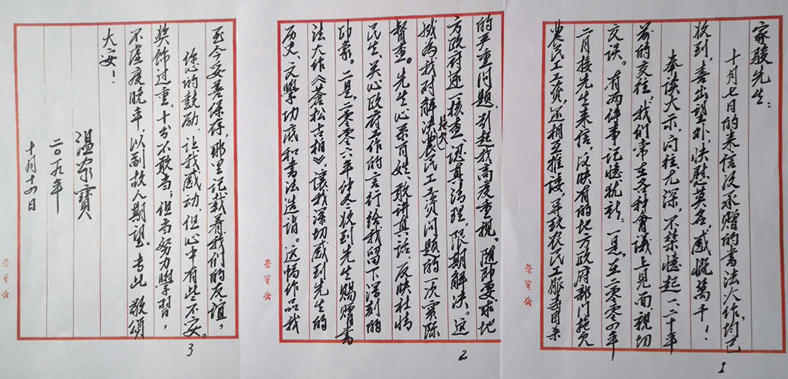 家骏先生：
十月七日的来信及承赠的書法大作，均已
收到，喜出望外，快慰莫名，感慨萬千！
奉读大示，向往尤深，不禁憶起二十年
前的交往。我们常在各种會議上见面，親切
交谈。有两件事记憶犹新：一是，在二〇〇四年
二月接先生来信，反映有的地方政府部门拖欠
農民工工资，还相互推诿，导致农民工服毒自杀
1
的严重问题，引起我高度重視。随即要求地
方政府逐一核查，認真清理，限期解决。这
成为我对解决拖欠農民工工资问题的一次實际
督查。先生心系百姓，敢讲真话，反映社情
民生，关心政府工作的言行给我留下深刻的
印象。二是，二〇〇六年仲冬收到先生赐赠書
法大作《蒼松古柏》，讓我深切感到先生的
历史、文學功底和書法造诣。这幅作品我
2
至今妥善保存，那里记载着我们的友谊。
您的鼓励，让我感动，但心中有些不安。
奖饰过重，十分不敢当，但当努力學習，
不虚度晚年，以副故人期望。专此 敬颂
大安！
温家寶
二〇一九年
十月十四日
3
荣宝斋
荣宝斋
荣宝斋